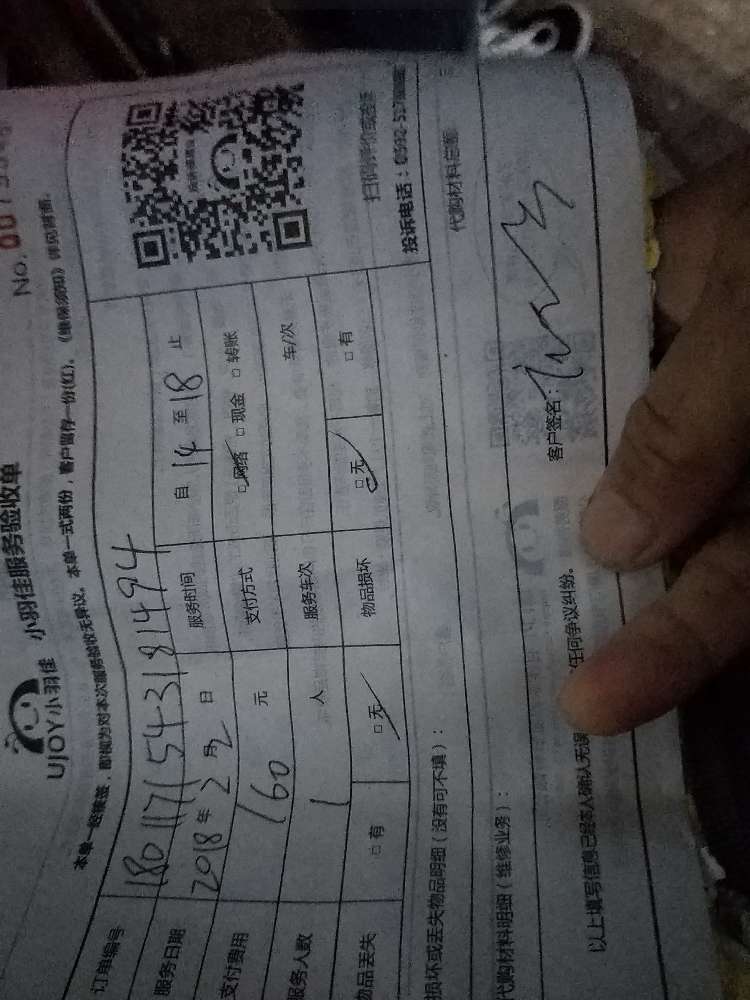 No. 007
UJOY小羽佳 小羽佳服务验收单
本单一经接签，即视为对本次服务验收无异议。本单一式两份，客户留存一份(红)。《维保须知》详见背面。
订单编号 180117154318 1494
服务日期 2018年2月2日 服务时间 自14至18止
支付费用 160元 支付方式 □网络 □现金 □转账
服务人数 1人 服务车次 车/次
物品丢失 □有 □无 物品损坏 □无 □有
投诉电话：0592-57
损坏或丢失物品明细（没有可不填）：
代购材料明细（维修业务）： 代购材料总额
以上填写信息已经本人确认无误 任何争议纠纷。 客户签名：